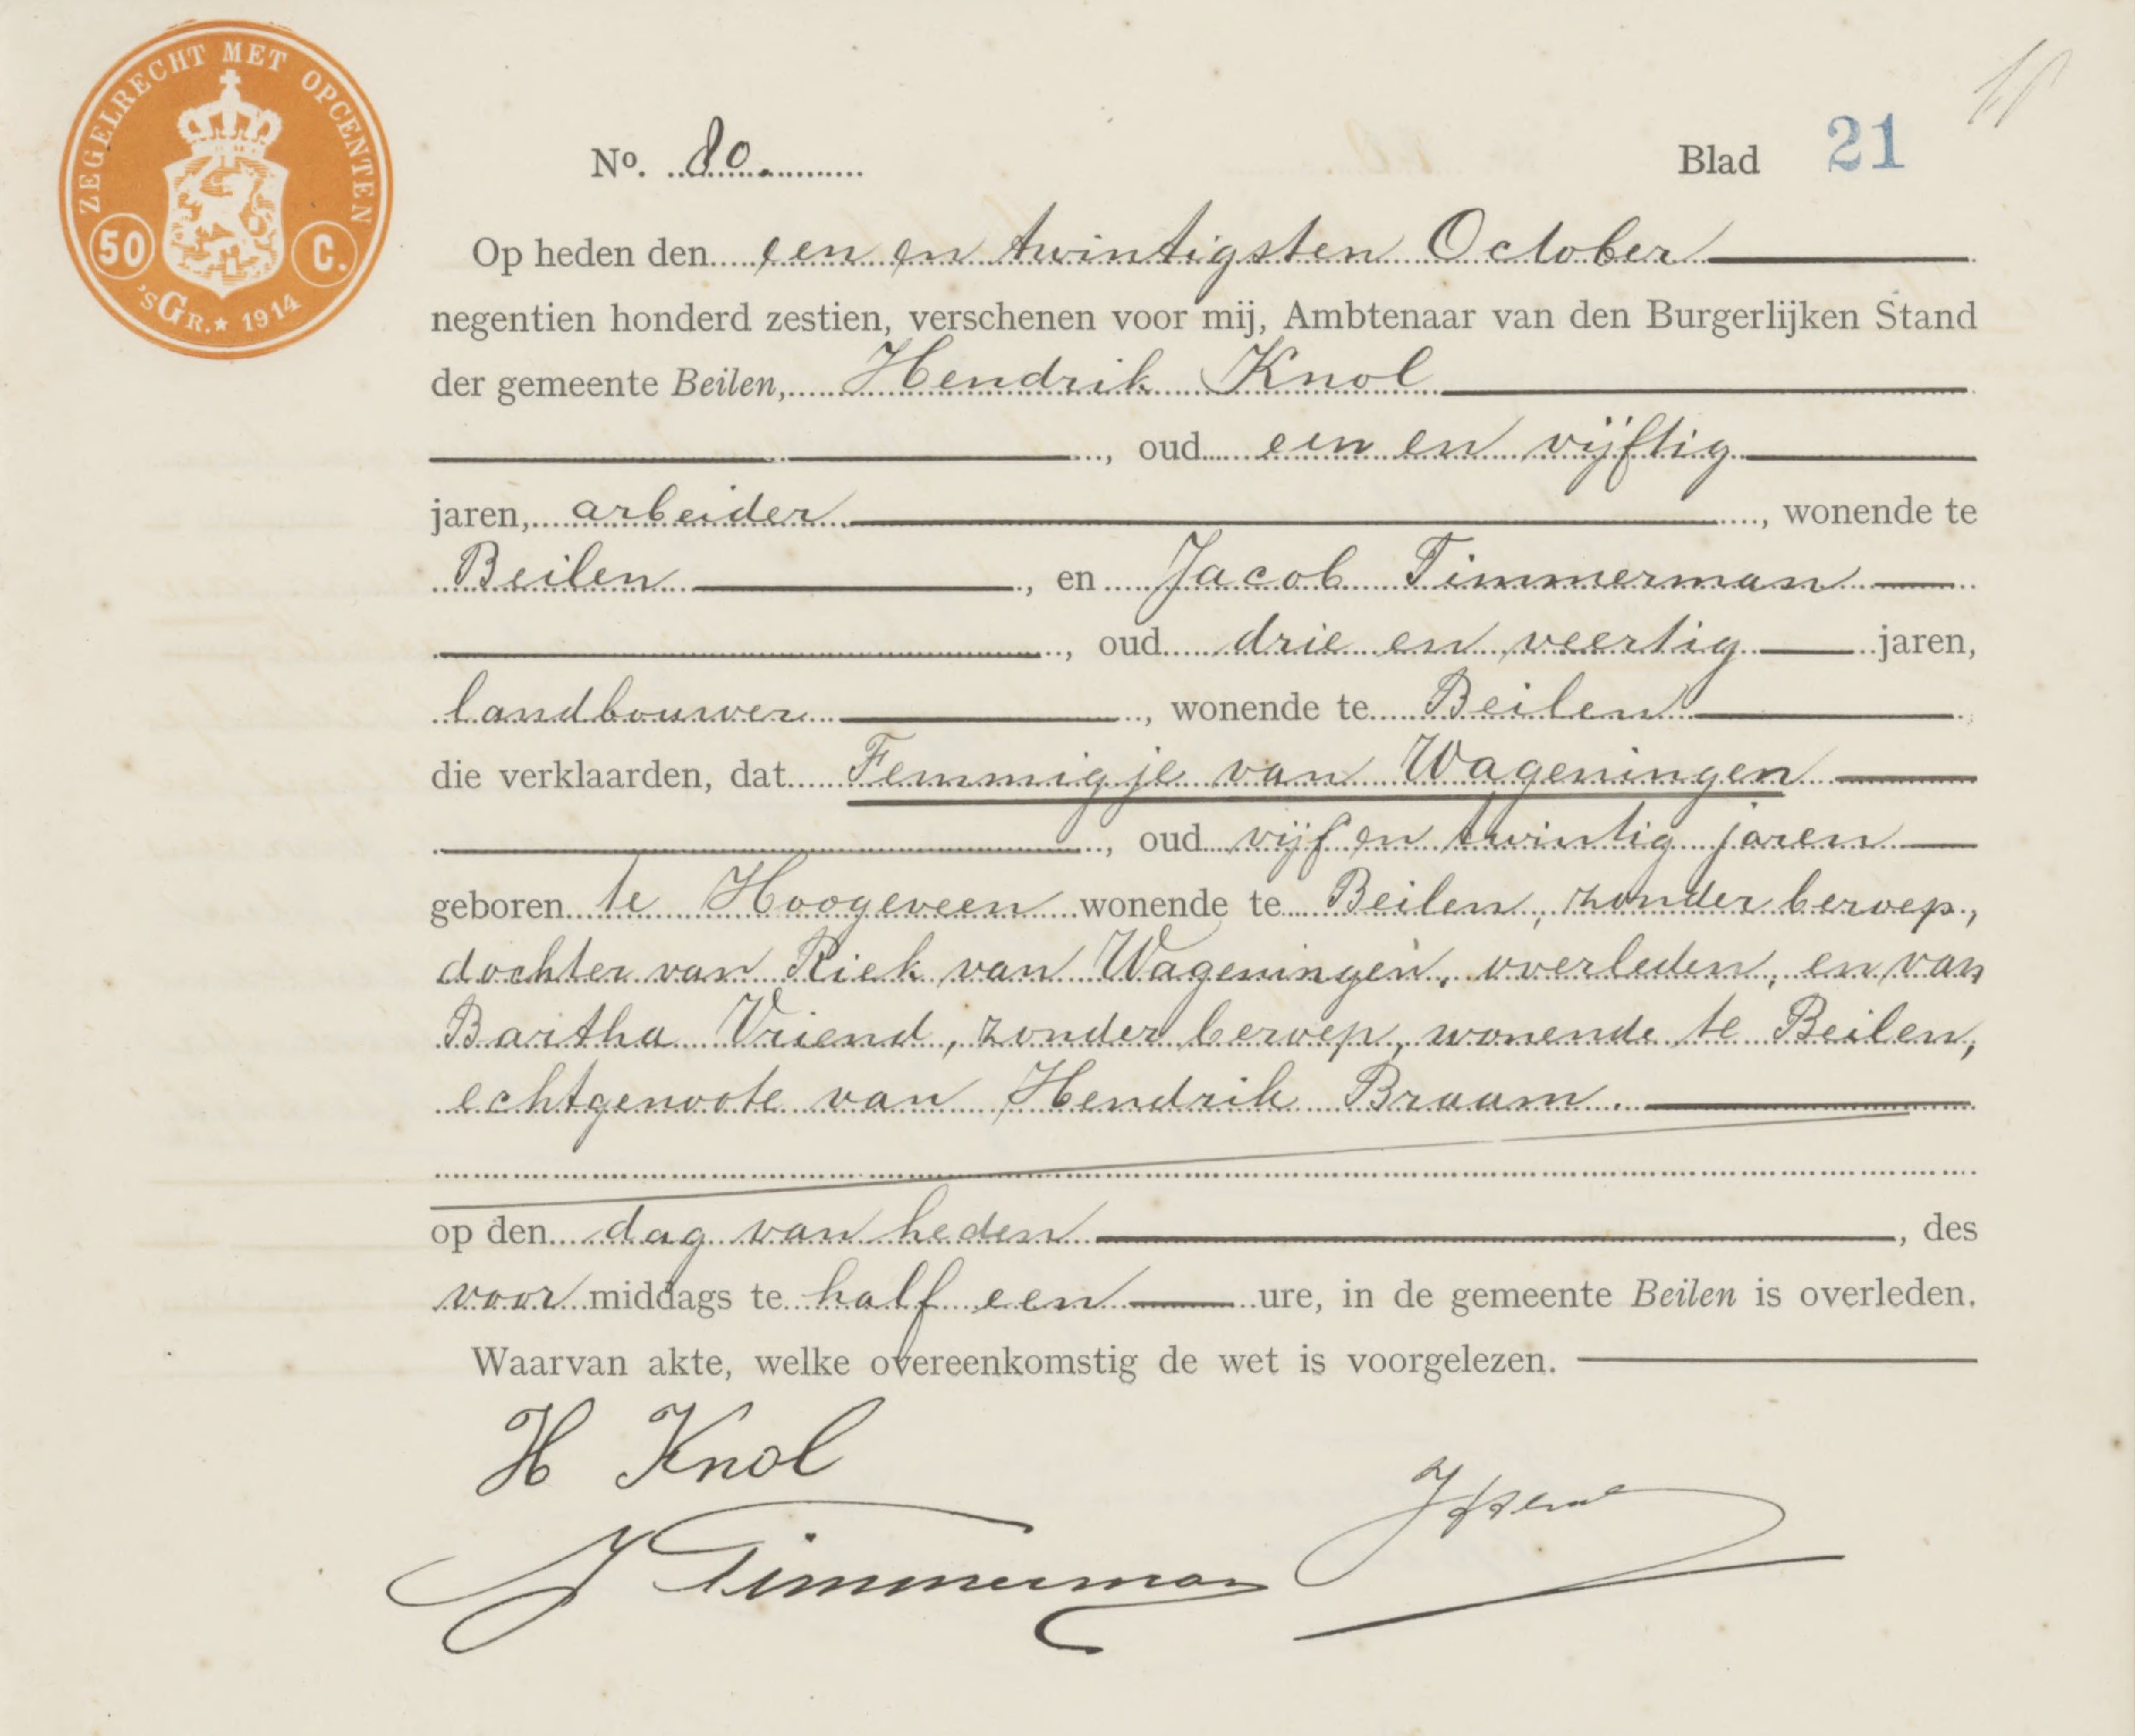 ZEGELRECHT MET OPCENTEN
50 C.
'S GR. ★ 1914
No. 80.
Blad 21
Op heden den een en twintigsten October
negentien honderd zestien, verschenen voor mij, Ambtenaar van den Burgerlijken Stand
der gemeente Beilen, Hendrik Knol
, oud een en vijftig
jaren, arbeider, wonende te
Beilen, en Jacob Timmerman
, oud drie en veertig jaren,
landbouwer, wonende te Beilen
die verklaarden, dat Femmigje van Wageningen
, oud vijf en twintig jaren
geboren te Hoogeveen wonende te Beilen, zonder beroep,
dochter van Riek van Wageningen, overleden, en van
Bartha Vriend, zonder beroep, wonende te Beilen,
echtgenoote van Hendrik Braam.
op den dag van heden, des
voormiddags te half een ure, in de gemeente Beilen is overleden.
Waarvan akte, welke overeenkomstig de wet is voorgelezen.
H Knol
J Timmerman